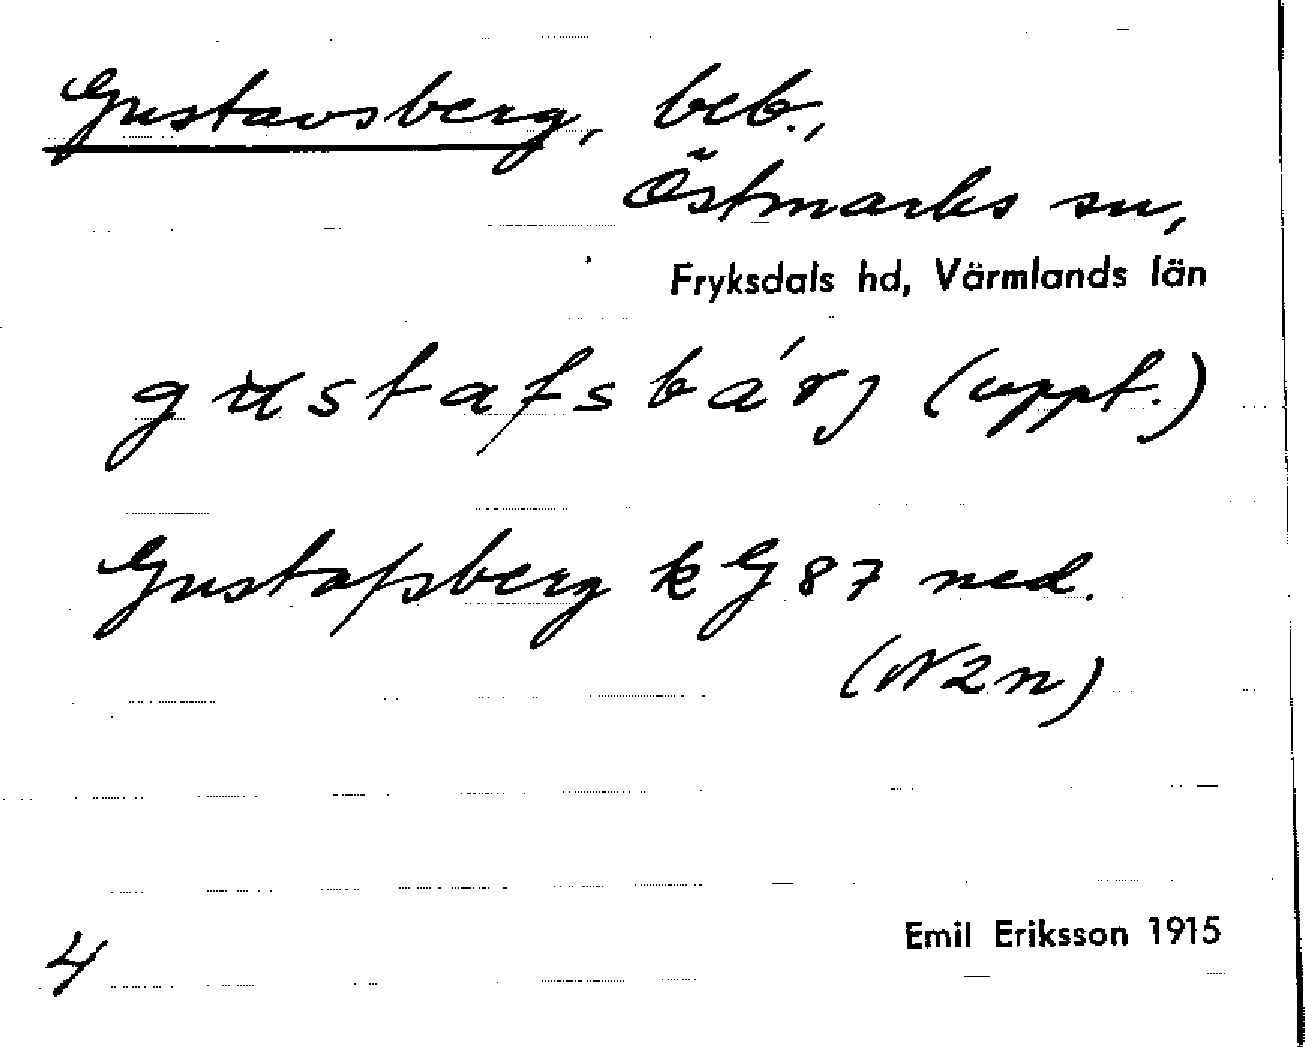 Gustavsberg, beb.,
Östmarks sn,
Fryksdals hd, Värmlands län
gustafsbárj (uppt.)
Gustafsberg kG87 ned.
(N2n)
Emil Eriksson 1915
4